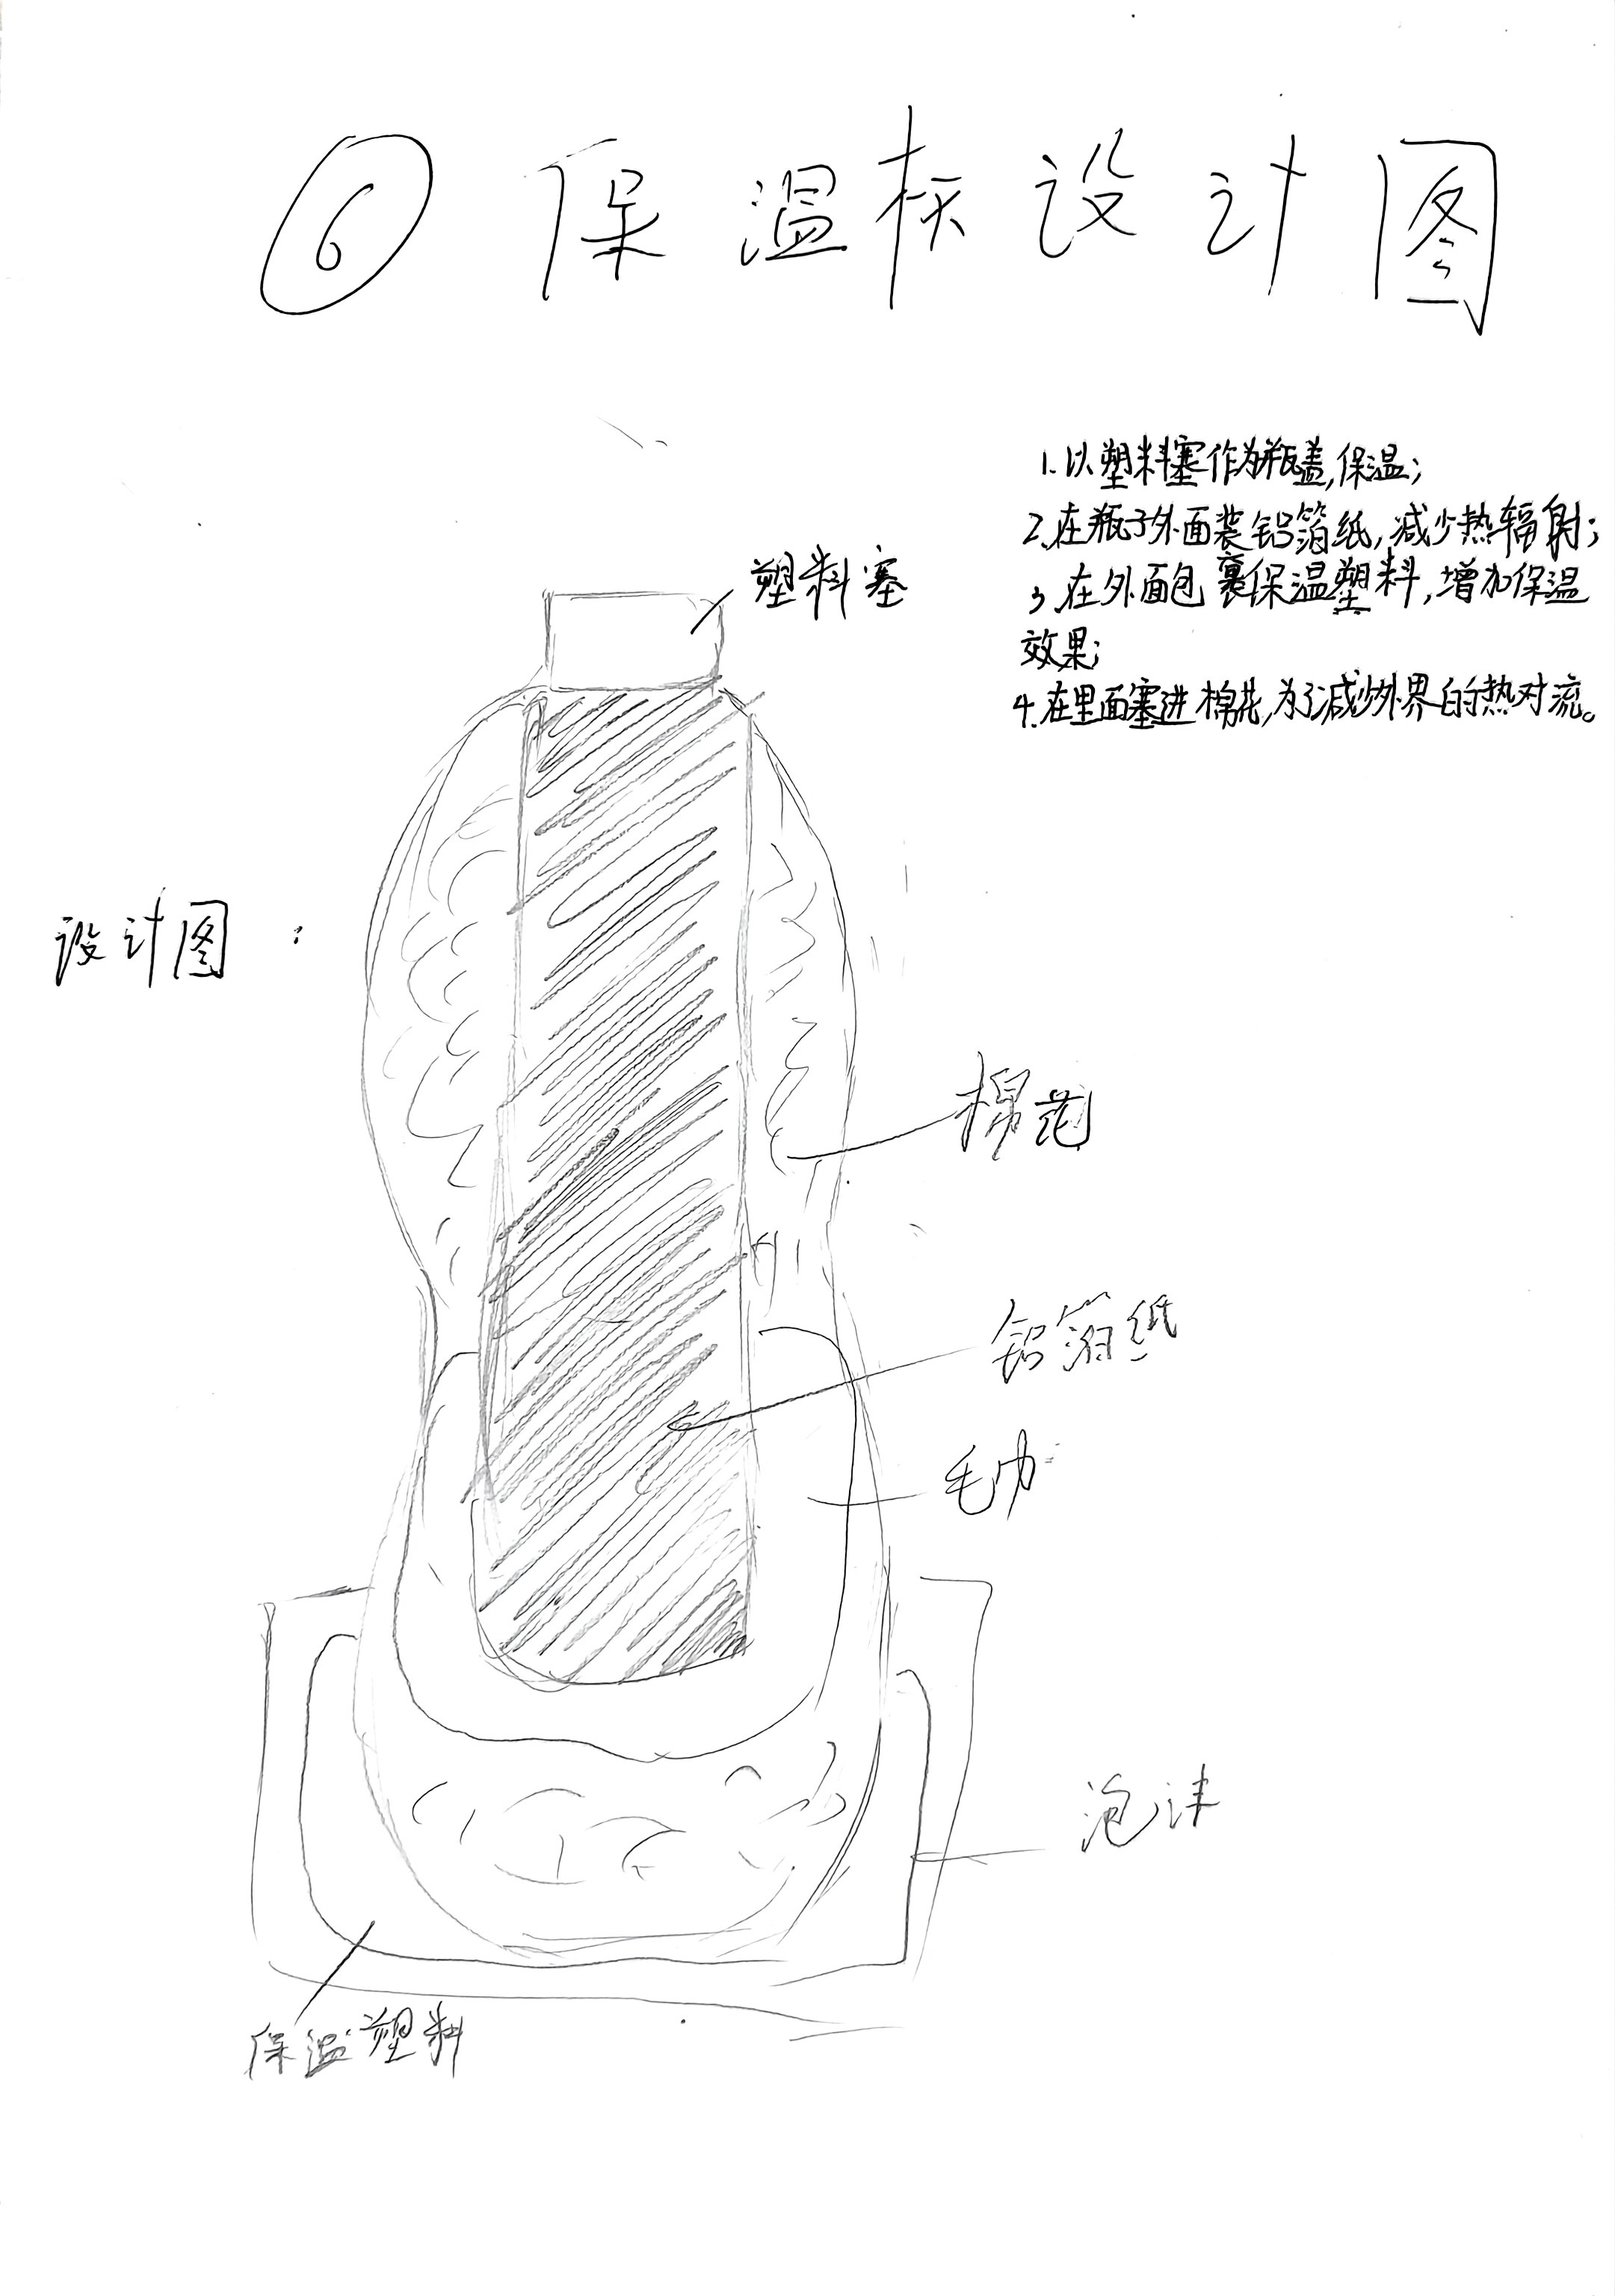 ⑥ 保温杯设计图
1.以塑料塞作为瓶盖,保温;
2.在瓶子外面装铝箔纸,减少热辐射;
3.在外面包裹保温塑料,增加保温
效果;
4.在里面塞进棉花,为了减少外界的热对流。
塑料塞
设计图:
棉花
铝箔纸
毛巾
泡沫
保温塑料